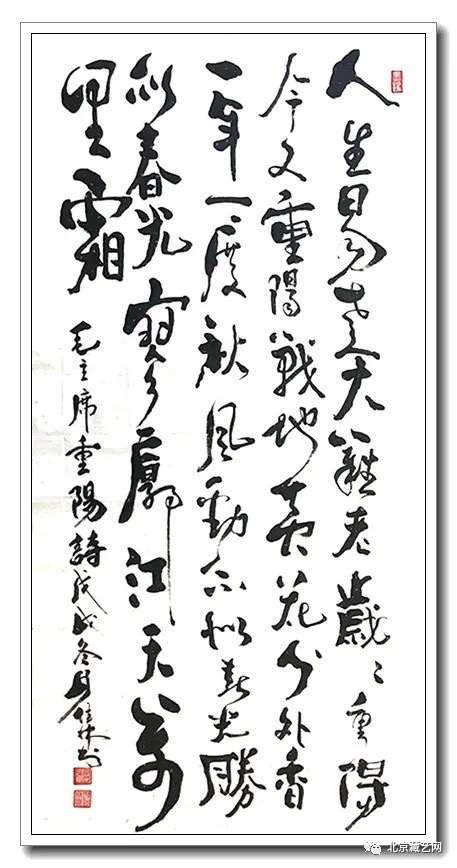 人生易老天難老歲々重陽
今又重陽戰地黄花分外香
一年一度秋風勁不似春光勝
似春光寥廓江天萬
里霜
毛主席重陽詩戊戌冬月
北京藏艺网